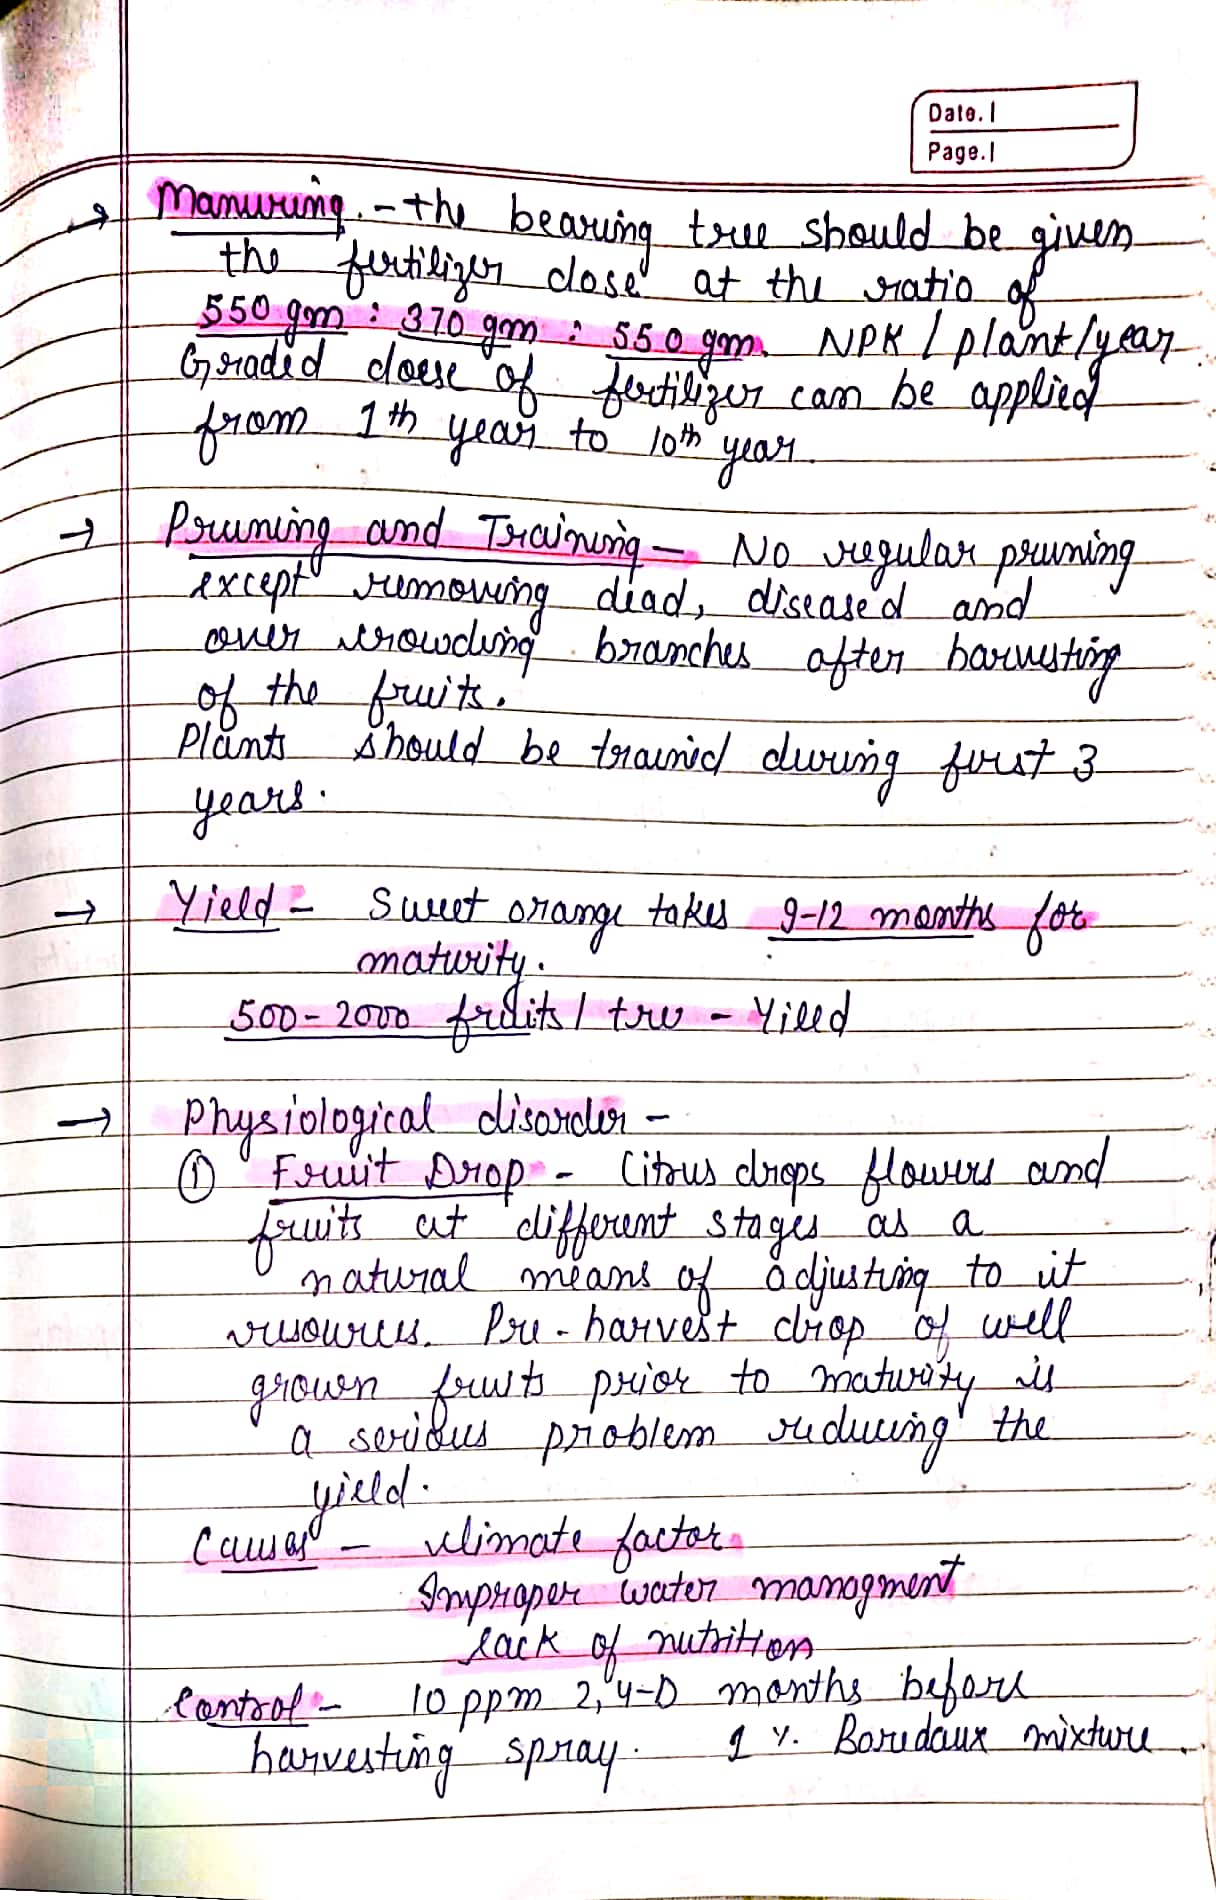 Date.
Page.
→ Manuring. - the bearing tree should be given
the fertilizer dose at the ratio of
550 gm : 370 gm : 550 gm. NPK / plant/year
Graded doese of fertilizer can be applied
from 1th year to 10th year.
→ Pruning and Training - No regular pruning
except removing dead, diseased and
over crowding branches after harvesting
of the fruits.
Plants should be trained during first 3
years.
→ Yield - Sweet orange takes 9-12 months for
maturity.
500-2000 fruits / tree - Yieed
→ Physiological disorder -
① Fruit Drop - Citrus drops flowers and
fruits at different stages as a
natural means of adjusting to it
resources. Pre-harvest drop of well
grown fruits prior to maturity is
a serious problem reducing the
yield.
Causes - climate factor
Improper water managment
lack of nutrition
Control - 10 ppm 2,4-D months before
harvesting spray. 1 %. Boredaux mixture.